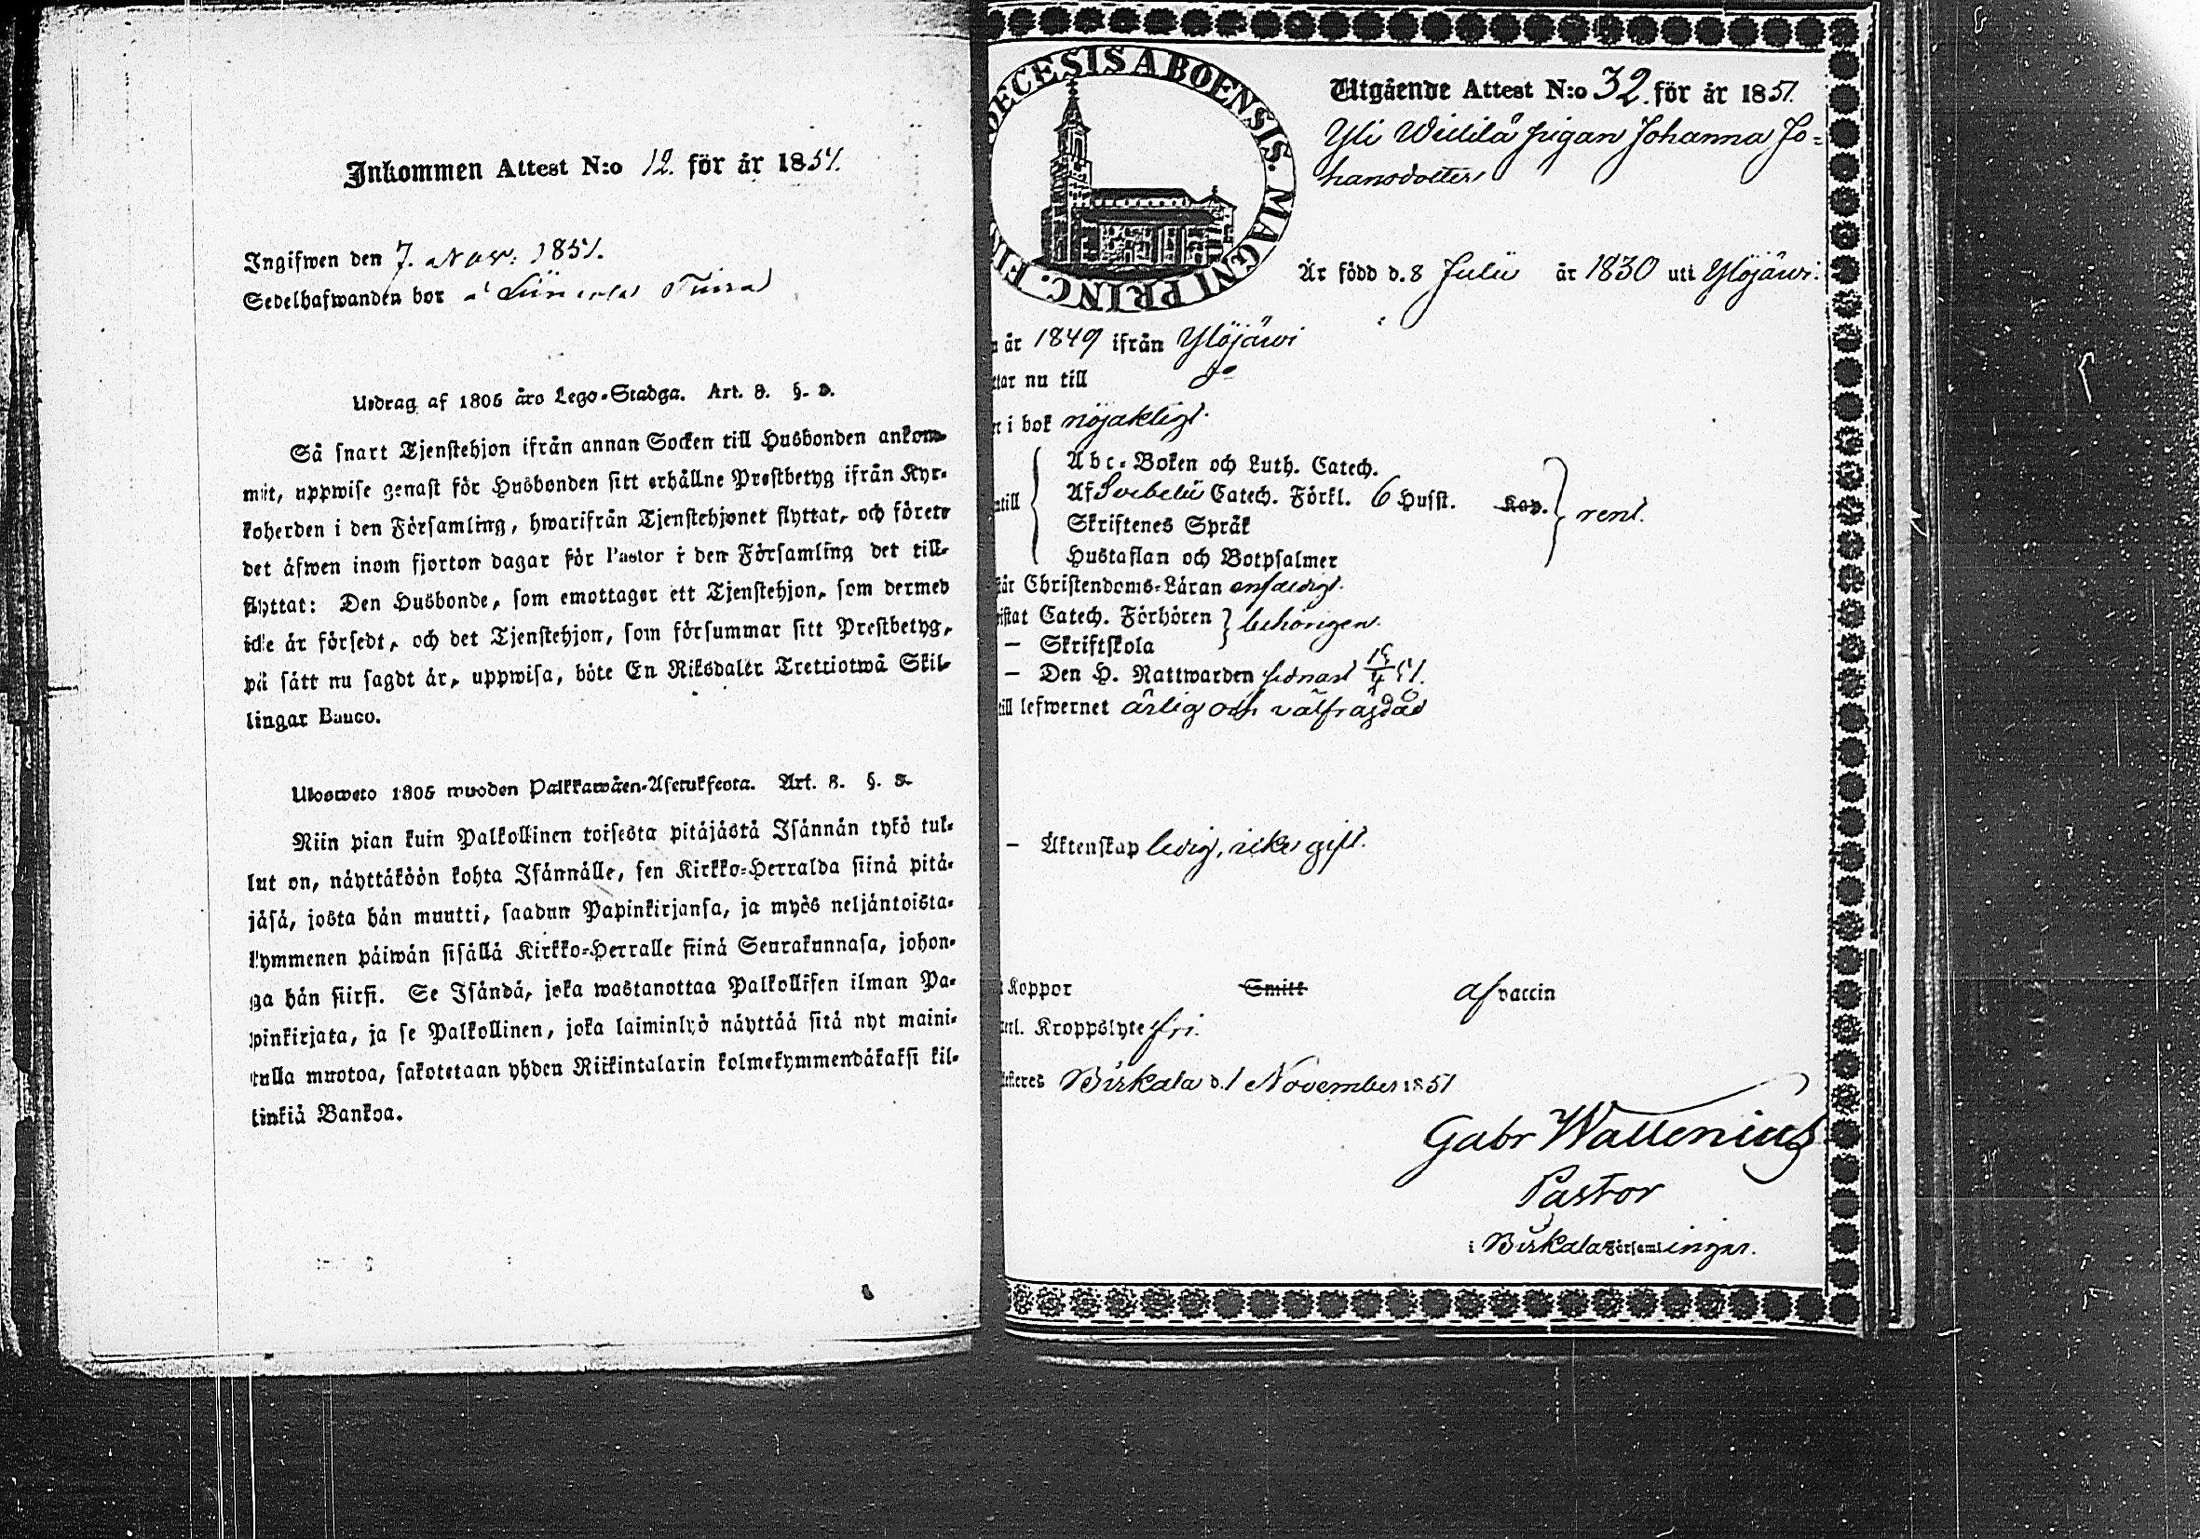 Inkommen Attest N:o 12. för år 1851.
Ingifwen den 7. Nov: 1851.
Sedelhafwanden bor
Utdrag af 1805 års Lego-Stadga. Art. 8. §. 3.
Så snart Tjenstehjon ifrån annan Socken till Husbonden ankom-
mit, uppwise genast för Husbonden sitt erhållne Prestbetyg ifrån Kyr-
koherden i den Församling, hwarifrån Tjenstehjonet flyttat, och förete
det äfwen inom fjorton dagar för Pastor i den Församling det till-
flyttat: Den Husbonde, som emottager ett Tjenstehjon, som dermed
icke är försedt, och det Tjenstehjon, som försummar sitt Prestbetyg,
på sätt nu sagdt är, uppwisa, böte En Riksdaler Trettiotwå Skil-
lingar Banco.
Ulosweto 1805 wuoden Palkkawäen-Asetuksesta. Art. 8. §. 3.
Niin pian kuin Palkollinen toisesta pitäjästä Isännän tykö tul-
lut on, näyttäköön kohta Isännälle, sen Kirkko-Herralda siinä pitä-
jäsä, josta hän muutti, saadun Papinkirjansa, ja myös neljäntoista-
kymmenen päiwän sisällä Kirkko-Herralle siinä Seurakunnasa, johon-
ga hän siirsi. Se Isändä, joka wastanottaa Palkollisen ilman Pa-
pinkirjata, ja se Palkollinen, joka laiminlyö näyttää sitä nyt maini-
tulla muotoa, sakotetaan yhden Riikintalarin kolmekymmendäkaksi kil-
linkiä Bankoa.
DIOECESIS ABOENSIS. MAGNI PRINC. FIN
Utgående Attest N:o 32. för år 1851.
Yli Willilä pigan Johanna Jo-
hansdotter
Är född d. 8 Julii år 1830 uti Ylöjärwi.
år 1849 ifrån Ylöjärwi
tar nu till do
i bok nöjaktigt.
Abc-Boken och Luth. Catech.
Af Svebelii Catech. Förkl. 6 Husst. Kap. rent.
till
Skriftenes Språk
Hustaflan och Botpsalmer
Christendoms-Läran enfaldigt.
Catech. Förhören behörigen.
— Skriftskola
— Den H. Nattwarden sednast
till lefwernet ärlig och välfräjdad
— Äktenskap ledig, icke gift.
Koppor Smitt af vaccin
Kroppslyte fri.
Birkala d. 1 November 1851
Gabr Wallenius
Pastor
i Birkala Församlingar.